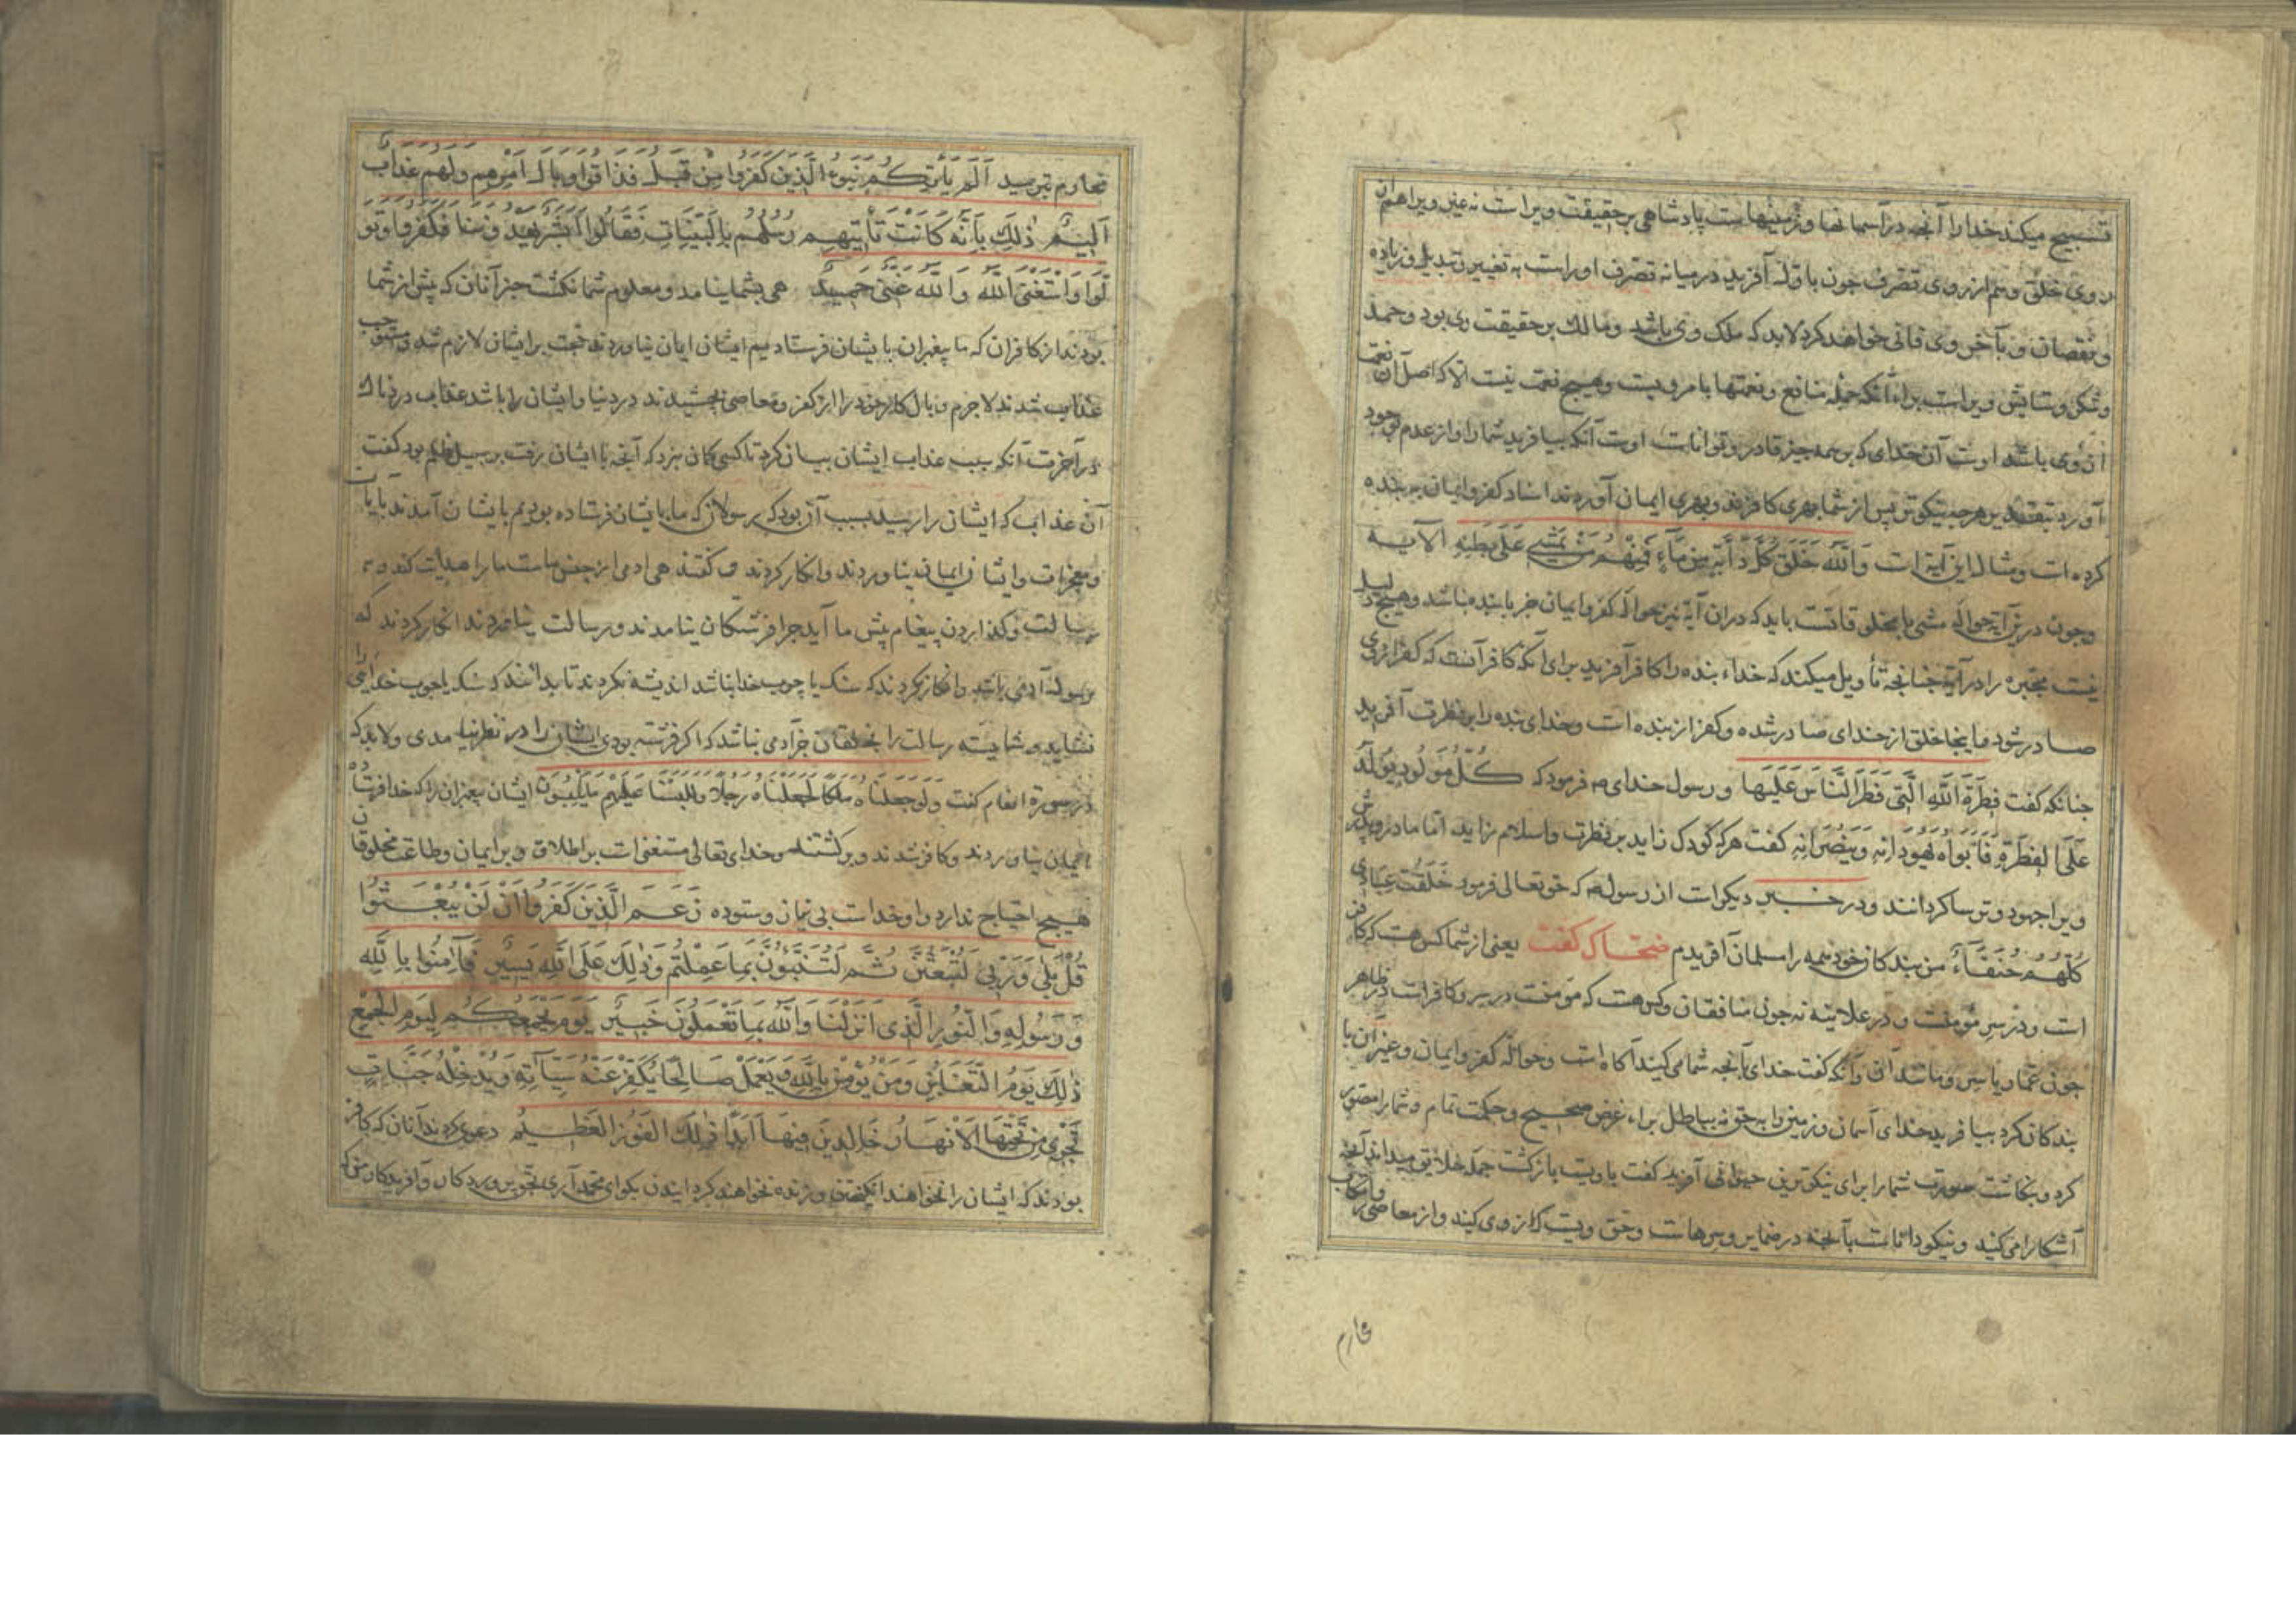 تسبیح میکند خدا را آنجه در آسمانها و زمینهاست پادشاهی بر حقیقت ویراست نه غیر ویرا هم از
روی خلق و هم از روی تصرف جون باوّل آفرید در میانه تصرف اوراست به تغییر و تبدیل و زیاده
و نقصان و بآخر وی فانی خواهد کرد لابد که ملک وی باشد و مالک بر حقیقت وی بود و حمد
و شکر و ستایش ویراست براء آنکه جمله منافع و نعمتها بامر ویست و هیچ نعمت نیست الا که اصل آن نعمت
از وی باشد اوست آن خدای که بر همه جیز قادر و تواناست اوست آنکه بیافرید شما را و از عدم بوجود
آورد بتقدیر هرجه نیکوتر پس از شما بهری کافرند و بهری ایمان آورده‌اند اسناد کفر و ایمان به بنده
کرده است و مثال این آیه است وَاللّٰهُ خَلَقَ كُلَّ دَآبَّةٍ مِنْ مَآءٍ فَمِنْهُمْ مَنْ يَمْشِي عَلَى بَطْنِهِ الآيه
وجون درین آیه حوالۀ مشی با مخلوقاتست باید که در ان آیه نیز حوالۀ کفر و ایمان جز با بنده نباشد و هیچ دلیل
نیست مجبره را در آیه جنانجه تأویل میکنند که خداء بنده را کافر آفرید برای آنکه کافر آنست که کفر از وی
صادر شود و اینجا خلق از خدای صادر شده و کفر از بنده است و خدای بنده را بر فطرت آفرید
جنانکه کفت فِطْرَةَ اللّٰهِ الَّتِي فَطَرَ النَّاسَ عَلَيْهَا و رسول خدای صه فرمود که كُلُّ مَوْلُودٍ يُولَدُ
عَلَى الْفِطْرَةِ فَأَبَوَاهُ يُهَوِّدَانِهِ وَيُنَصِّرَانِهِ کفت هر که کودک زاید بر فطرت و اسلام زاید اما مادر و پدرش
ویرا جهود و ترسا کردانند و در خبر دیکر است از رسول صه که حق تعالی فرمود خَلَقْتُ عِبَادِي
كُلَّهُمْ حُنَفَآءَ من بندکان خود همه را مسلمان آفریدم ضحّاک کفت یعنی از شما کس هست که کافر
است و در سِر مؤمنست و در علانیه نه جون منافقان و کس هست که مؤمنست در سر و کافر است در ظاهر
جون عمّار یاسر و مانند آن و آنکه کفت خدای بآنجه شما می‌کنید آکاه است و حوالۀ کفر و ایمان و غیر آن با
بندکان کرد بیافرید خدای آسمان و زمین را به حق نه بباطل براء غرض صحیح و حکمت تمام و شما را مصور
کرد و بنکاشت صورت شما را برای نیکوترین حیوانی آفرید کفت با ویست بازکشت جمله خلایق میداند آنجه
آشکارا می‌کنید و نیکو داناست بآنجه در ضمایر و سرهاست و حق ویست که از وی
محارم
محارم بترسید اَلَمْ يَأْتِكُمْ نَبَؤُا الَّذِينَ كَفَرُوا مِنْ قَبْلُ فَذَاقُوا وَبَالَ اَمْرِهِمْ وَلَهُمْ عَذَابٌ
اَلِيمٌ ذٰلِكَ بِاَنَّهُ كَانَتْ تَأْتِيهِمْ رُسُلُهُمْ بِالْبَيِّنَاتِ فَقَالُوا اَبَشَرٌ يَهْدُونَنَا فَكَفَرُوا وَتَوَ
لَّوْا وَاسْتَغْنَى اللّٰهُ وَاللّٰهُ غَنِيٌّ حَمِيدٌ هی بشما نیامد و معلوم شما نکشت خبر آنان که پیش از شما
بودند از کافران که ما پیغمبران بایشان فرستادیم ایشان ایمان نیاوردند حجت بر ایشان لازم شد و مستوجب
عذاب شدند لاجرم وبال کار خود را از کفر و معاصی بچشیدند در دنیا و ایشان را باشد عذاب دردناک
در آخرت آنکه سبب عذاب ایشان بیان کرد تا کسی کمان نبرد که آنجه با ایشان رفت بر سبیل ظلم بود کفت
آن عذاب که ایشان را رسید بسبب آن بود که رسولان که ما بایشان فرستاده بودیم بایشان آمدند با بیان
و معجزات و ایشان ایمان نیاوردند و انکار کردند و کفتند هی ادمی از جنس ماست ما را هدایت کند و به
رسالت و کذاردن پیغام پیش ما آید جرا فرشتکان نیامدند و رسالت نیاوردند انکار کردند که
رسول آدمی باشد و انکار نکردند که سنک یا چوب خدا باشد اندیشه نکردند تا بدانند که سنک یا جوب خدایی را
نشاید و شایسته رسالت را بخلقان جز آدمی نباشد که اکر فرشته بودی ایشان را در نظر نیامدی و لابد که
در سورۀ انعام کفت وَلَوْ جَعَلْنَاهُ مَلَكًا لَجَعَلْنَاهُ رَجُلًا وَلَلَبَسْنَا عَلَيْهِمْ مَا يَلْبِسُونَ ایشان پیغمبران را که خدا فرستاد
ایمان نیاوردند و کافر شدند و برکشتند و خدای تعالی مستغنی است بر اطلاق ویرا بایمان و طاعت مخلوقان
هیچ احتیاج ندارد و او خداست بی نیاز و ستوده زَعَمَ الَّذِينَ كَفَرُوا اَنْ لَنْ يُبْعَثُوا
قُلْ بَلٰى وَرَبِّي لَتُبْعَثُنَّ ثُمَّ لَتُنَبَّؤُنَّ بِمَا عَمِلْتُمْ وَذٰلِكَ عَلَى اللّٰهِ يَسِيرٌ فَآمِنُوا بِاللّٰهِ
وَرَسُولِهِ وَالنُّورِ الَّذِي اَنْزَلْنَا وَاللّٰهُ بِمَا تَعْمَلُونَ خَبِيرٌ يَوْمَ يَجْمَعُكُمْ لِيَوْمِ الْجَمْعِ
ذٰلِكَ يَوْمُ التَّغَابُنِ وَمَنْ يُؤْمِنْ بِاللّٰهِ وَيَعْمَلْ صَالِحًا يُكَفِّرْ عَنْهُ سَيِّاٰتِهِ وَيُدْخِلْهُ جَنَّاتٍ
تَجْرِي مِنْ تَحْتِهَا الْاَنْهَارُ خَالِدِينَ فِيهَا اَبَدًا ذٰلِكَ الْفَوْزُ الْعَظِيمُ دعوی کردند آنان که کافر
بودند که ایشان را نخواهند انکیختن و زنده نخواهند کرد ایندن بکو ای محمد آری